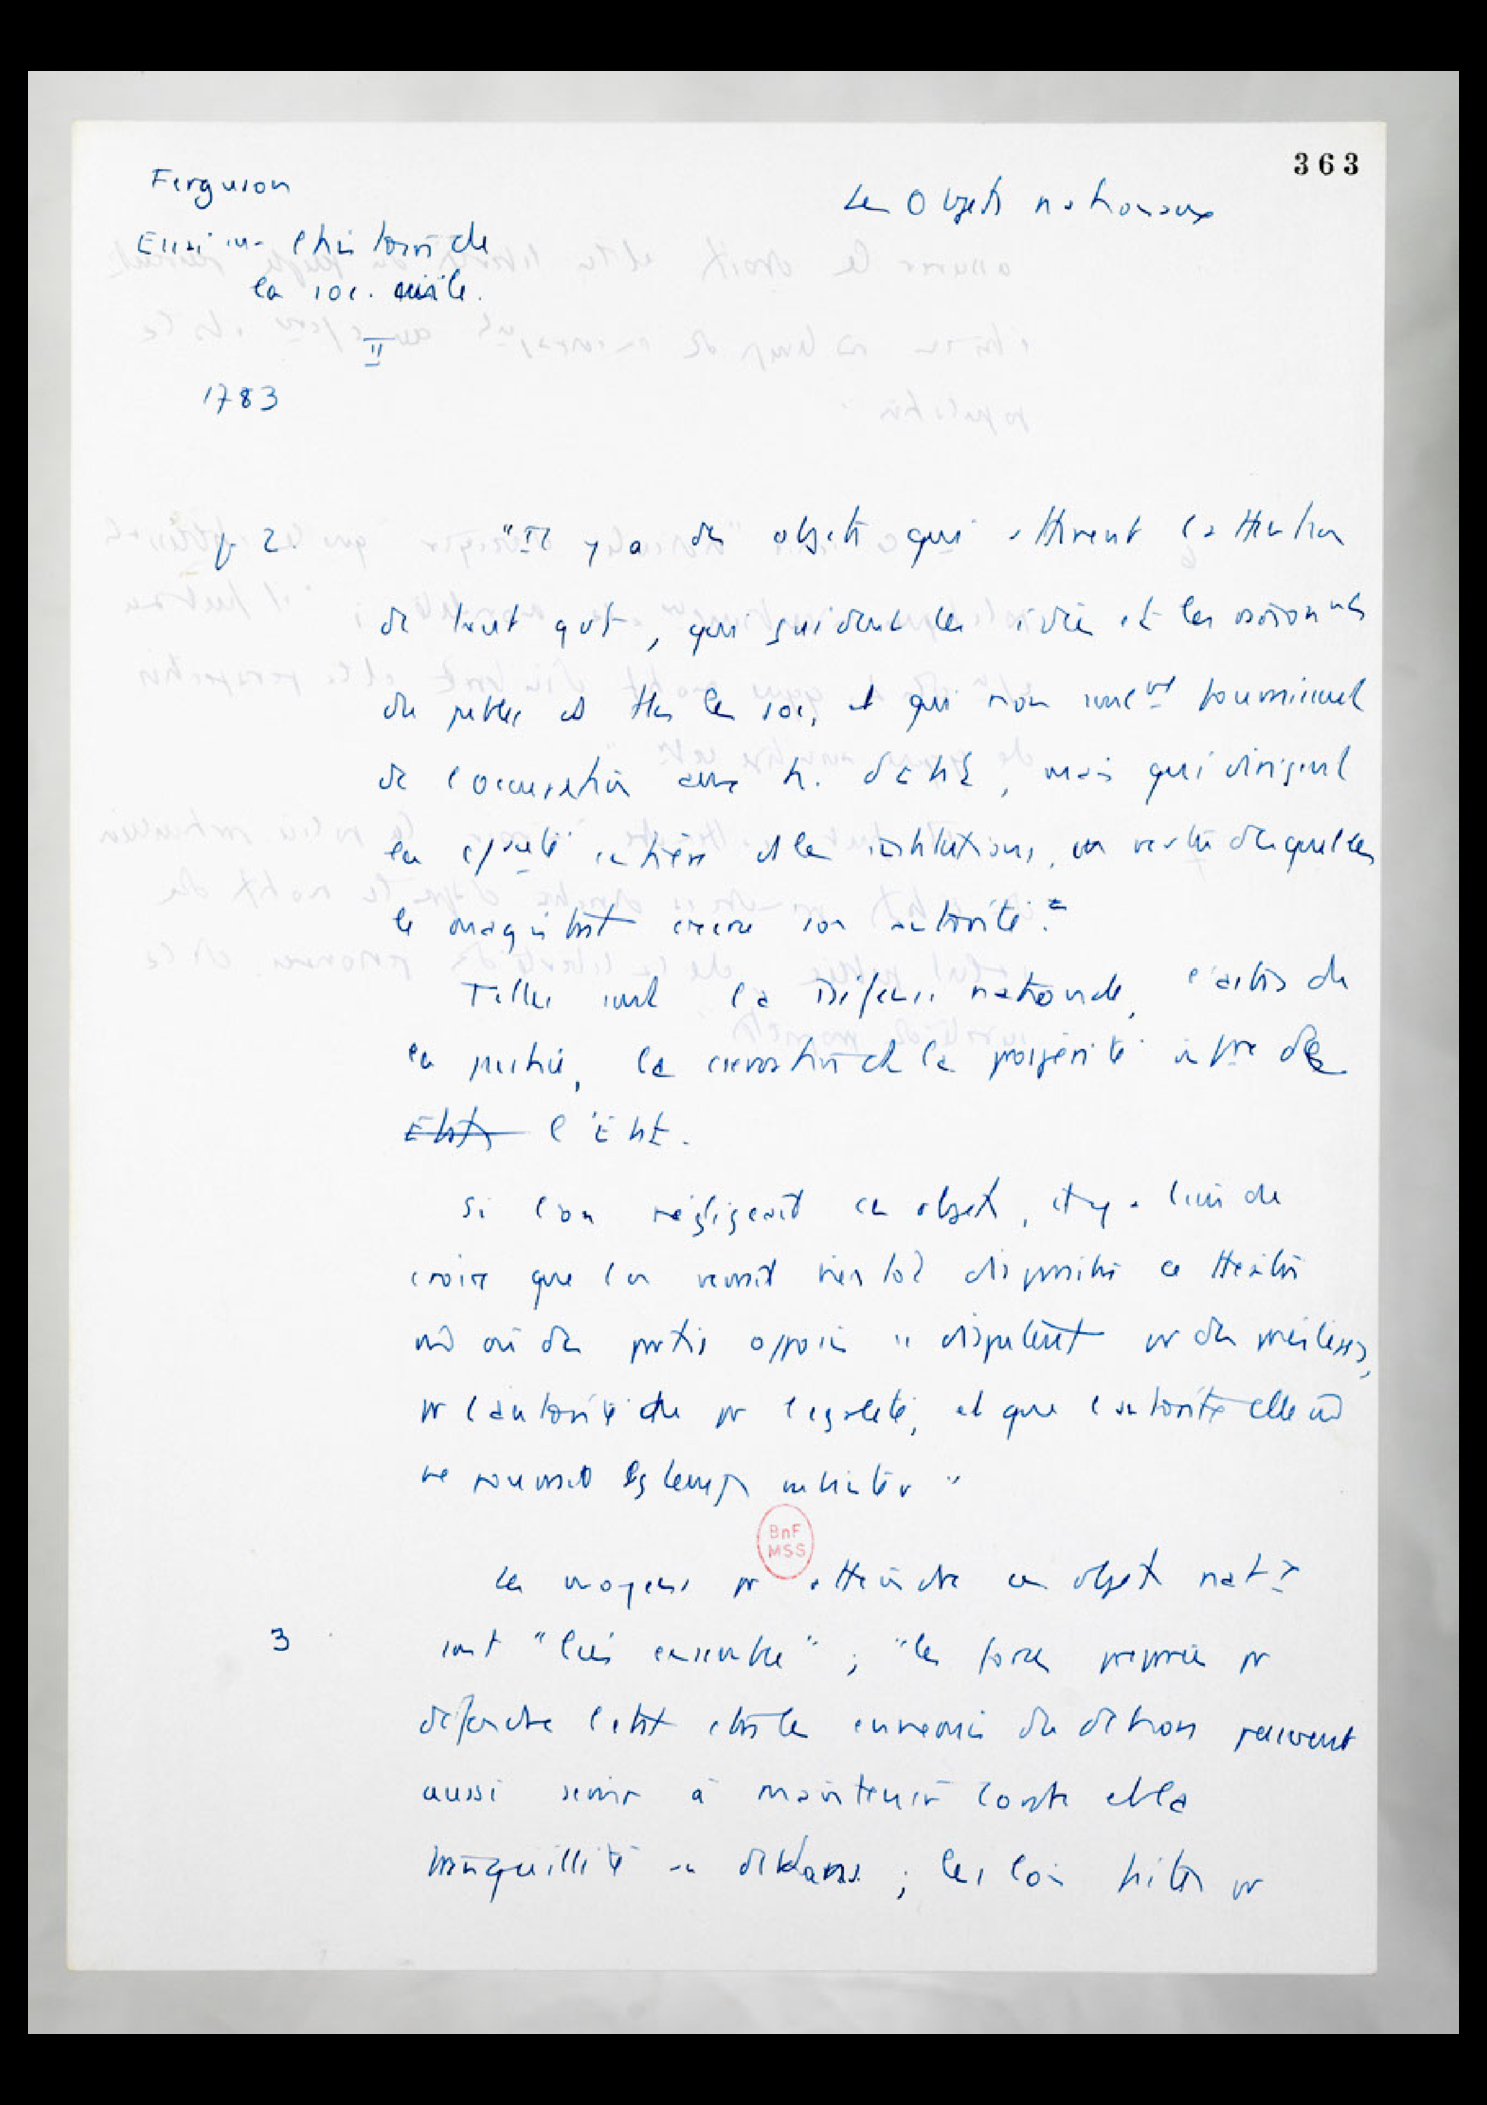 363
Ferguson
Les Objets nationaux
Essai sur l'histoire de
la soc. civile.
II
1783
p. 2. "Il y a des objets qui attirent l'attention
de tout gvt, qui guident les idées et les raisonnts
du public ds ttes les soc, et qui non seult fournissent
de l'occupation aux h. d'Etat, mais qui dirigent
la société entière et les institutions, en vertu desquelles
le magistrat exerce son autorité."
Telles sont la défense nationale, l'adtion de
la justice, la conservation et la prospérité intre de
l'Etat.
Si l'on négligeait ces objets, il y a lieu de
croire que l'on verrait bientôt disparaître
où des partis opposés se disputent pr des privilèges,
pr l'autorité ou pr l'égalité, et que l'autorité elle m̂
ne pourrait lgtemps subsister"
Les moyens pr atteindre ces objets natx
3 sont "liés ensemble" ; "les forces préparées pr
défendre l'état ctre les ennemis du dehors peuvent
aussi servir à maintenir l'ordre et la
tranquillité au dedans ; les lois faites pr
BnF
MSS